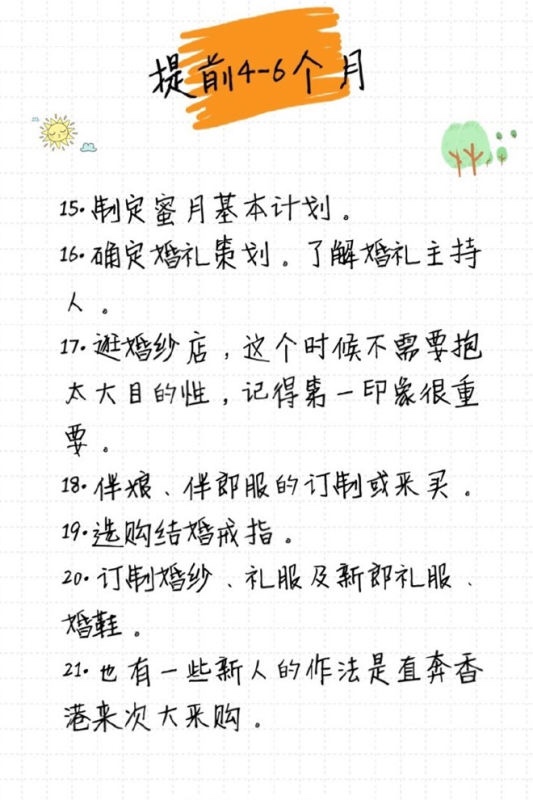 提前4-6个月
15.制定蜜月基本计划。
16.确定婚礼策划。了解婚礼主持
人。
17.逛婚纱店，这个时候不需要抱
太大目的性，记得第一印象很重
要。
18.伴娘、伴郎服的订制或采买。
19.选购结婚戒指。
20.订制婚纱、礼服及新郎礼服、
婚鞋。
21.也有一些新人的作法是直奔香
港来次大采购。